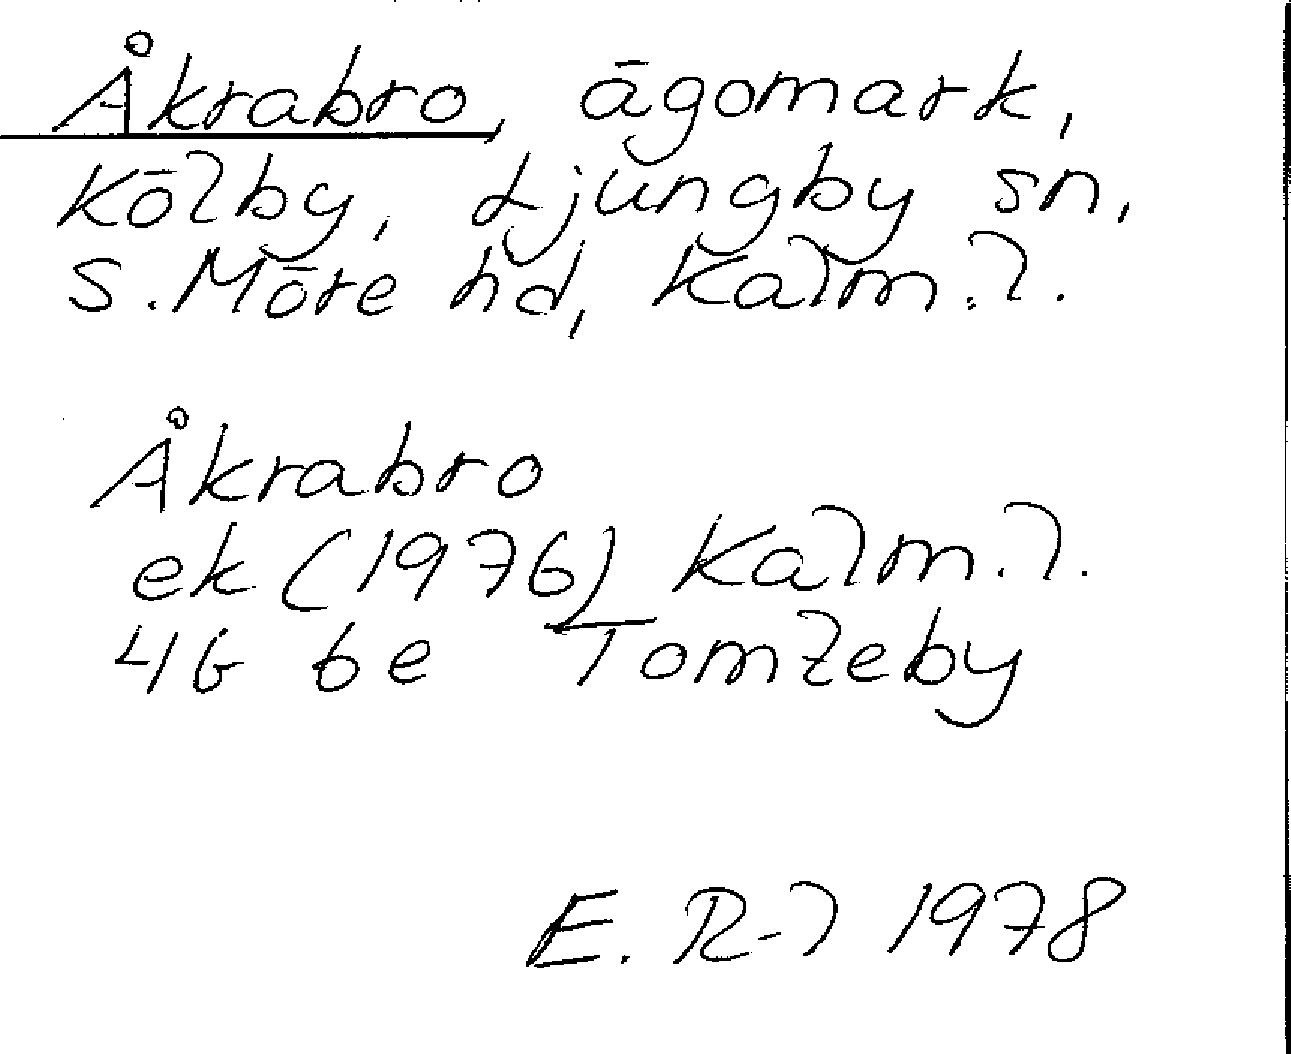 Åkrabro, ägomark,
Kölby, Ljungby sn,
S. Möre hd, Kalm. l.
Åkrabro
ek (1976) Kalm. l.
4G 6e Tomteby
E. R-l 1978